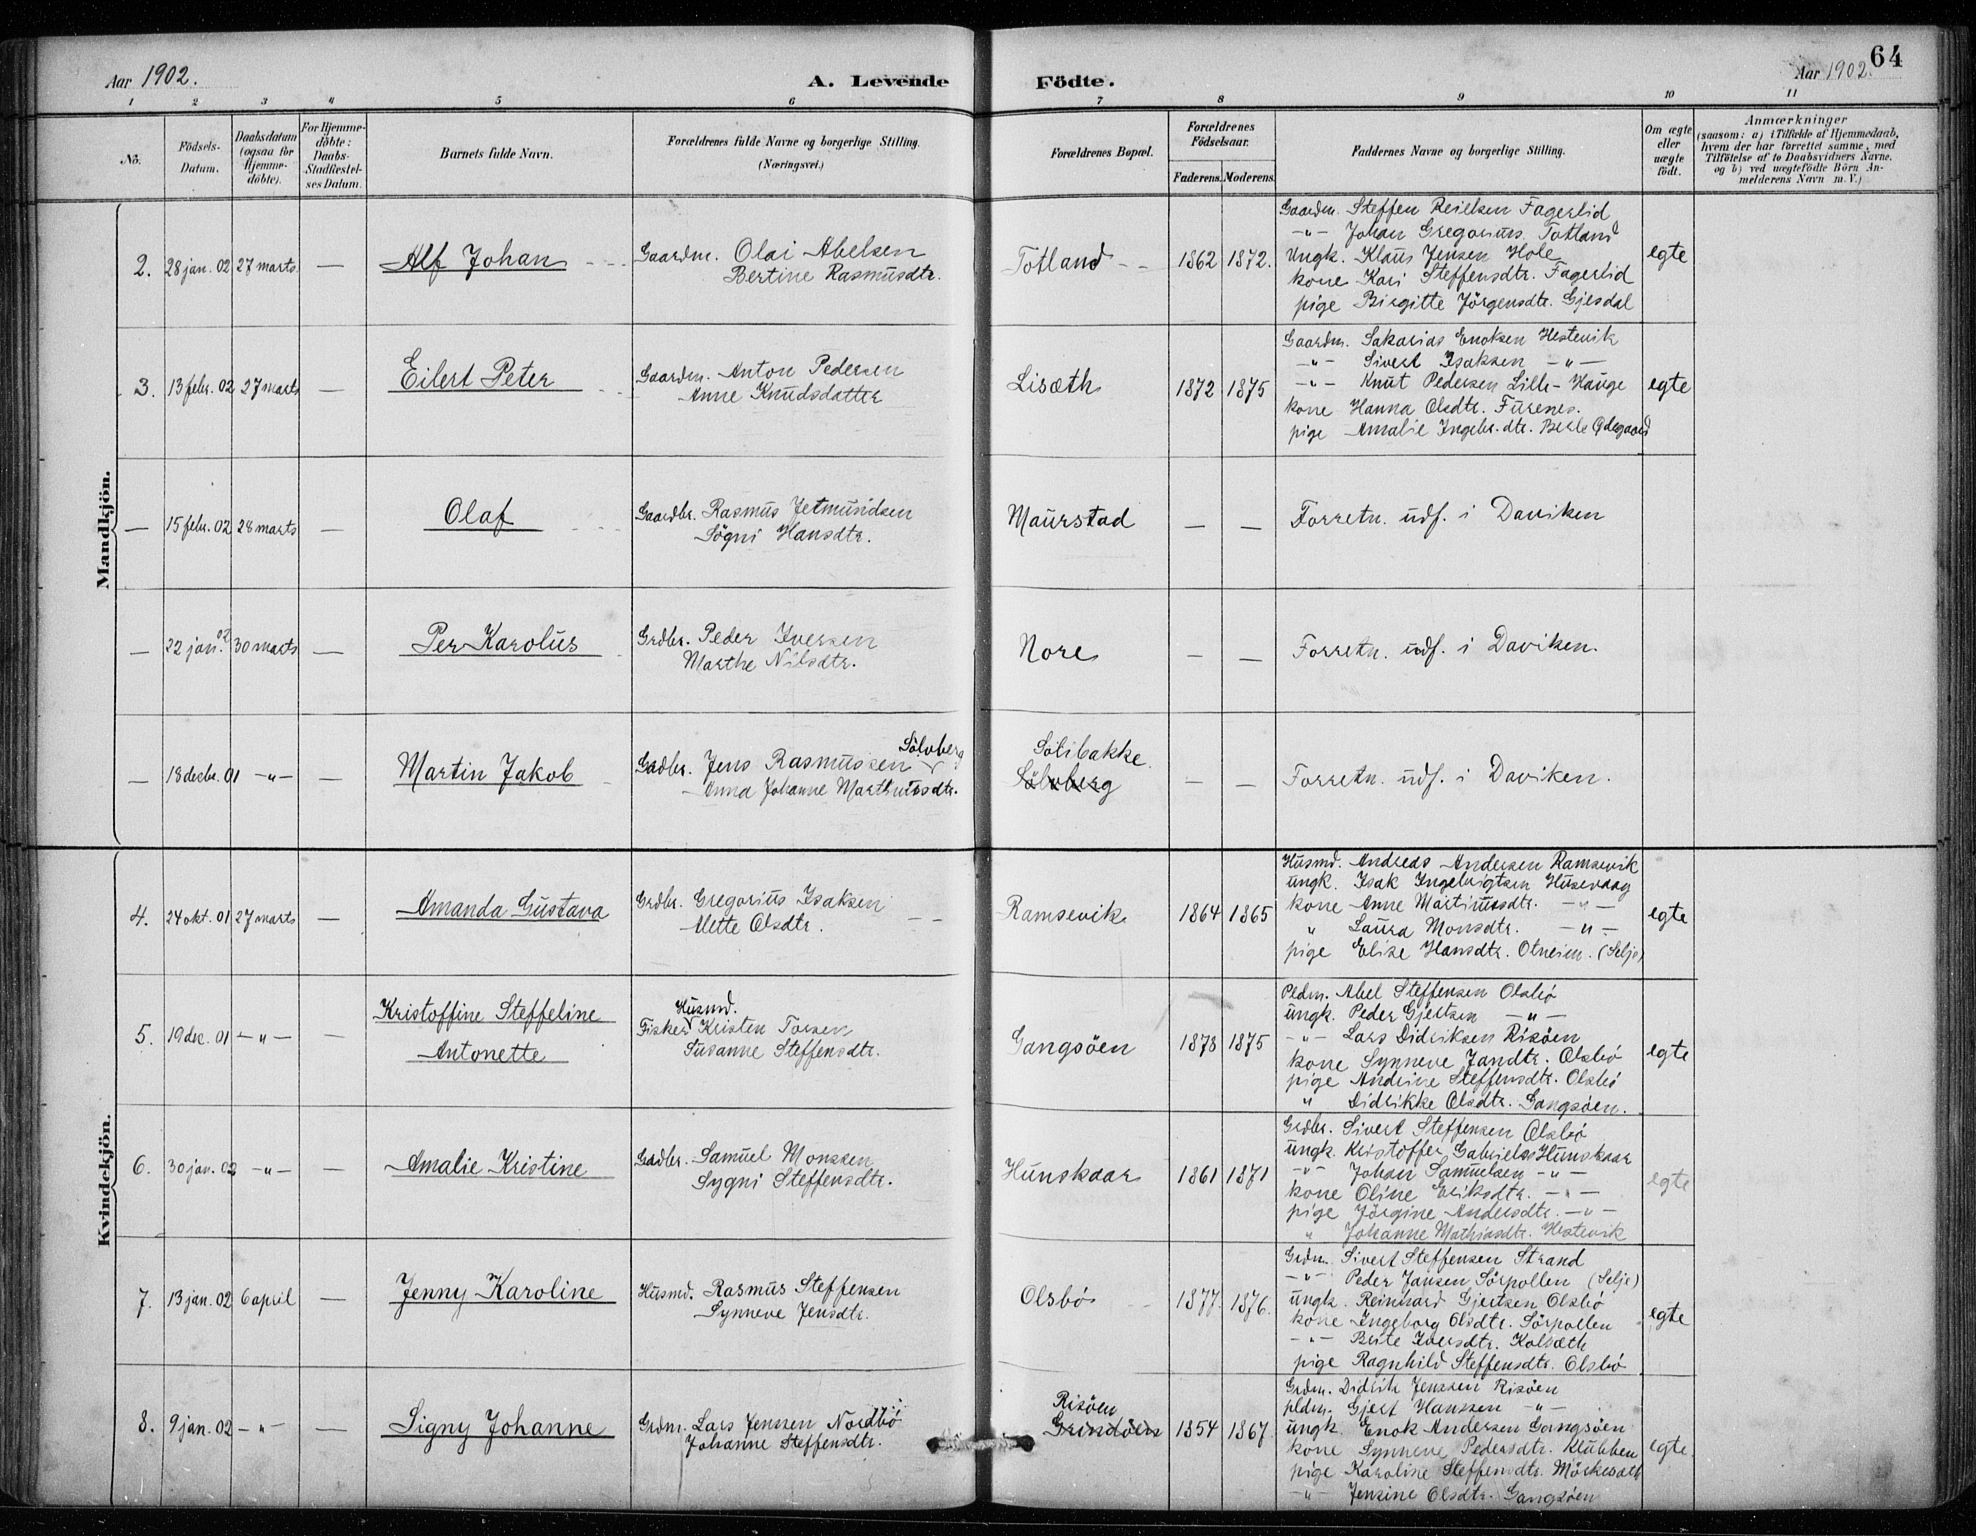 Aar 1902.
A. Levende Födte.
Aar 1902.
64
1 2 3 4 5 6 7 8 9 10 11
No.
Födsels-Datum.
Daabsdatum (ogsaa for Hjemme-döbte).
For Hjemme-döbte: Daabs-Stadfæstel-ses Datum.
Barnets fulde Navn.
Forældrenes fulde Navne og borgerlige Stilling.
(Næringsvei.)
Forældrenes Bopæl.
Forældrenes Födselsaar.
Faderens. Moderens.
Faddernes Navne og borgerlige Stilling.
Om ægte eller uægte födt.
Anmærkninger
(saasom: a) i Tilfælde af Hjemmedaab,
hvem der har forrettet samme, med
Tilföielse af to Daabsvidners Navne,
og b) ved uægtefödte Börn An-
melderens Navn m. V.)
Mandkjön.
2. 28 jan. 02 27 marts — Alf Johan
Gaardm. Olai Abelsen
Bertine Rasmusdtr.
Totland 1862 1872.
Gaardm. Steffen Reielsen Fagerlid
-"- Johan Gregorius Totland
Ungk. Klaus Jensen Hole
kone Kari Steffensdtr. Fagerlid
pige Birgitte Jörgensdtr. Gjesdal
egte
3. 13 febr. 02 27 marts — Eilert Peter
Gaardm. Anton Pedersen
Anne Knudsdatter
Lisæth 1872 1875
Gaardm. Sakarias Enoksen Hestevik
-"- Sivert Isaksen -"-
-"- Knut Pedersen Lille-Hauge
kone Hanna Olsdtr. Furenes.
pige Amalie Ingebr.dtr. Berle Ødegaard
egte
— 15 febr. 02 28 marts — Olaf
Gaardbr. Rasmus Jetmundsen
Sögni Hansdtr.
Maurstad — —
Forretn. udf. i Daviken
— 22 jan. 02 30 marts — Per Karolus
Grdbr. Peder Iversen
Marthe Nilsdtr.
Nore — —
Forretn. udf. i Daviken.
— 18 decbr. 01 -"- — Martin Jakob
Sölvberg
Grdbr. Jens Rasmussen
Anna Johanne Marthinusdtr.
Solibakke.
Sölvberg — —
Forretn. udf. i Daviken.
Kvindekjön.
4. 24 okt. 01 27 marts — Amanda Gustava
Grdbr. Gregorius Isaksen
Mette Olsdtr.
Ramsevik 1864 1865
Husmd. Andreas Andersen Ramsevik
ungk. Isak Ingebrigtsen Husevaag
kone Anne Martinusdtr. -"-
" Laura Monsdtr. -"-
pige Elise Hansdtr. Otneim. (Selje)
egte
5. 19 dec. 01 -"- — Kristoffine Steffeline
Antonette
Husmd.
Fisker Kristen Torsen
Susanne Steffensdtr.
Gangsöen 1878 1875
Pldm. Abel Steffensen Olsbö
ungk. Peder Gjertsen -"-
-"- Lars Didriksen Risöen
kone Synneve Jansdtr. Olsbö
pige Andrine Steffensdtr. Olsbö
" Didrikke Olsdtr. Gangsöen.
egte
6. 30 jan. 02 -"- — Amalie Kristine
Grdbr. Samuel Monssen
Sygni Steffensdtr.
Hunskaar 1861 1871
Grdbr. Sivert Steffensen Olsbö
ungk. Kristoffer Gabriels. Hunskaar
-"- Johan Samuelsen -"-
kone Oline Eriksdtr. -"-
pige Jörgine Andersdtr. -"-
" Johanne Mathiasdtr. Hestevik
egte
7. 13 jan. 02 6 april — Jenny Karoline
Husmd. Rasmus Steffensen
Synneve Jensdtr.
Olsbö 1877. 1876.
Grdm. Sivert Steffensen Strand
-"- Peder Jansen Sörpollen (Selje)
ungk. Reinhard Gjertsen Olsbö
kone Ingeborg Olsdtr. Sörpollen
-"- Berte Iversdtr. Kolsæth
pige Ragnhild Steffensdtr. Olsbö
egte
8. 9 jan. 02 -"- — Signy Johanne
Grdm. Lars Jensen Nordbö
Johanne Steffensdtr.
Risöen
Grindöen 1854 1867.
Grdm. Didrik Jenssen Risöen
pldm. Gjert Hanssen -"-
ungk. Enok Andersen Gangsöen
kone Synneve Pedersdtr. Klubben
pige Karoline Steffensdtr. Mörkesæth
-"- Jensine Olsdtr. Gangsöen
egte